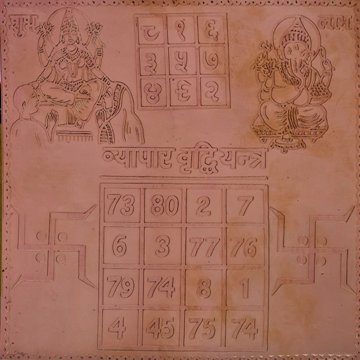 शुभ लाभ
८ १ ६
३ ५ ७
४ ९ २
व्यापार वृद्धि यन्त्र
73 80 2 7
6 3 77 76
79 74 8 1
4 45 75 74